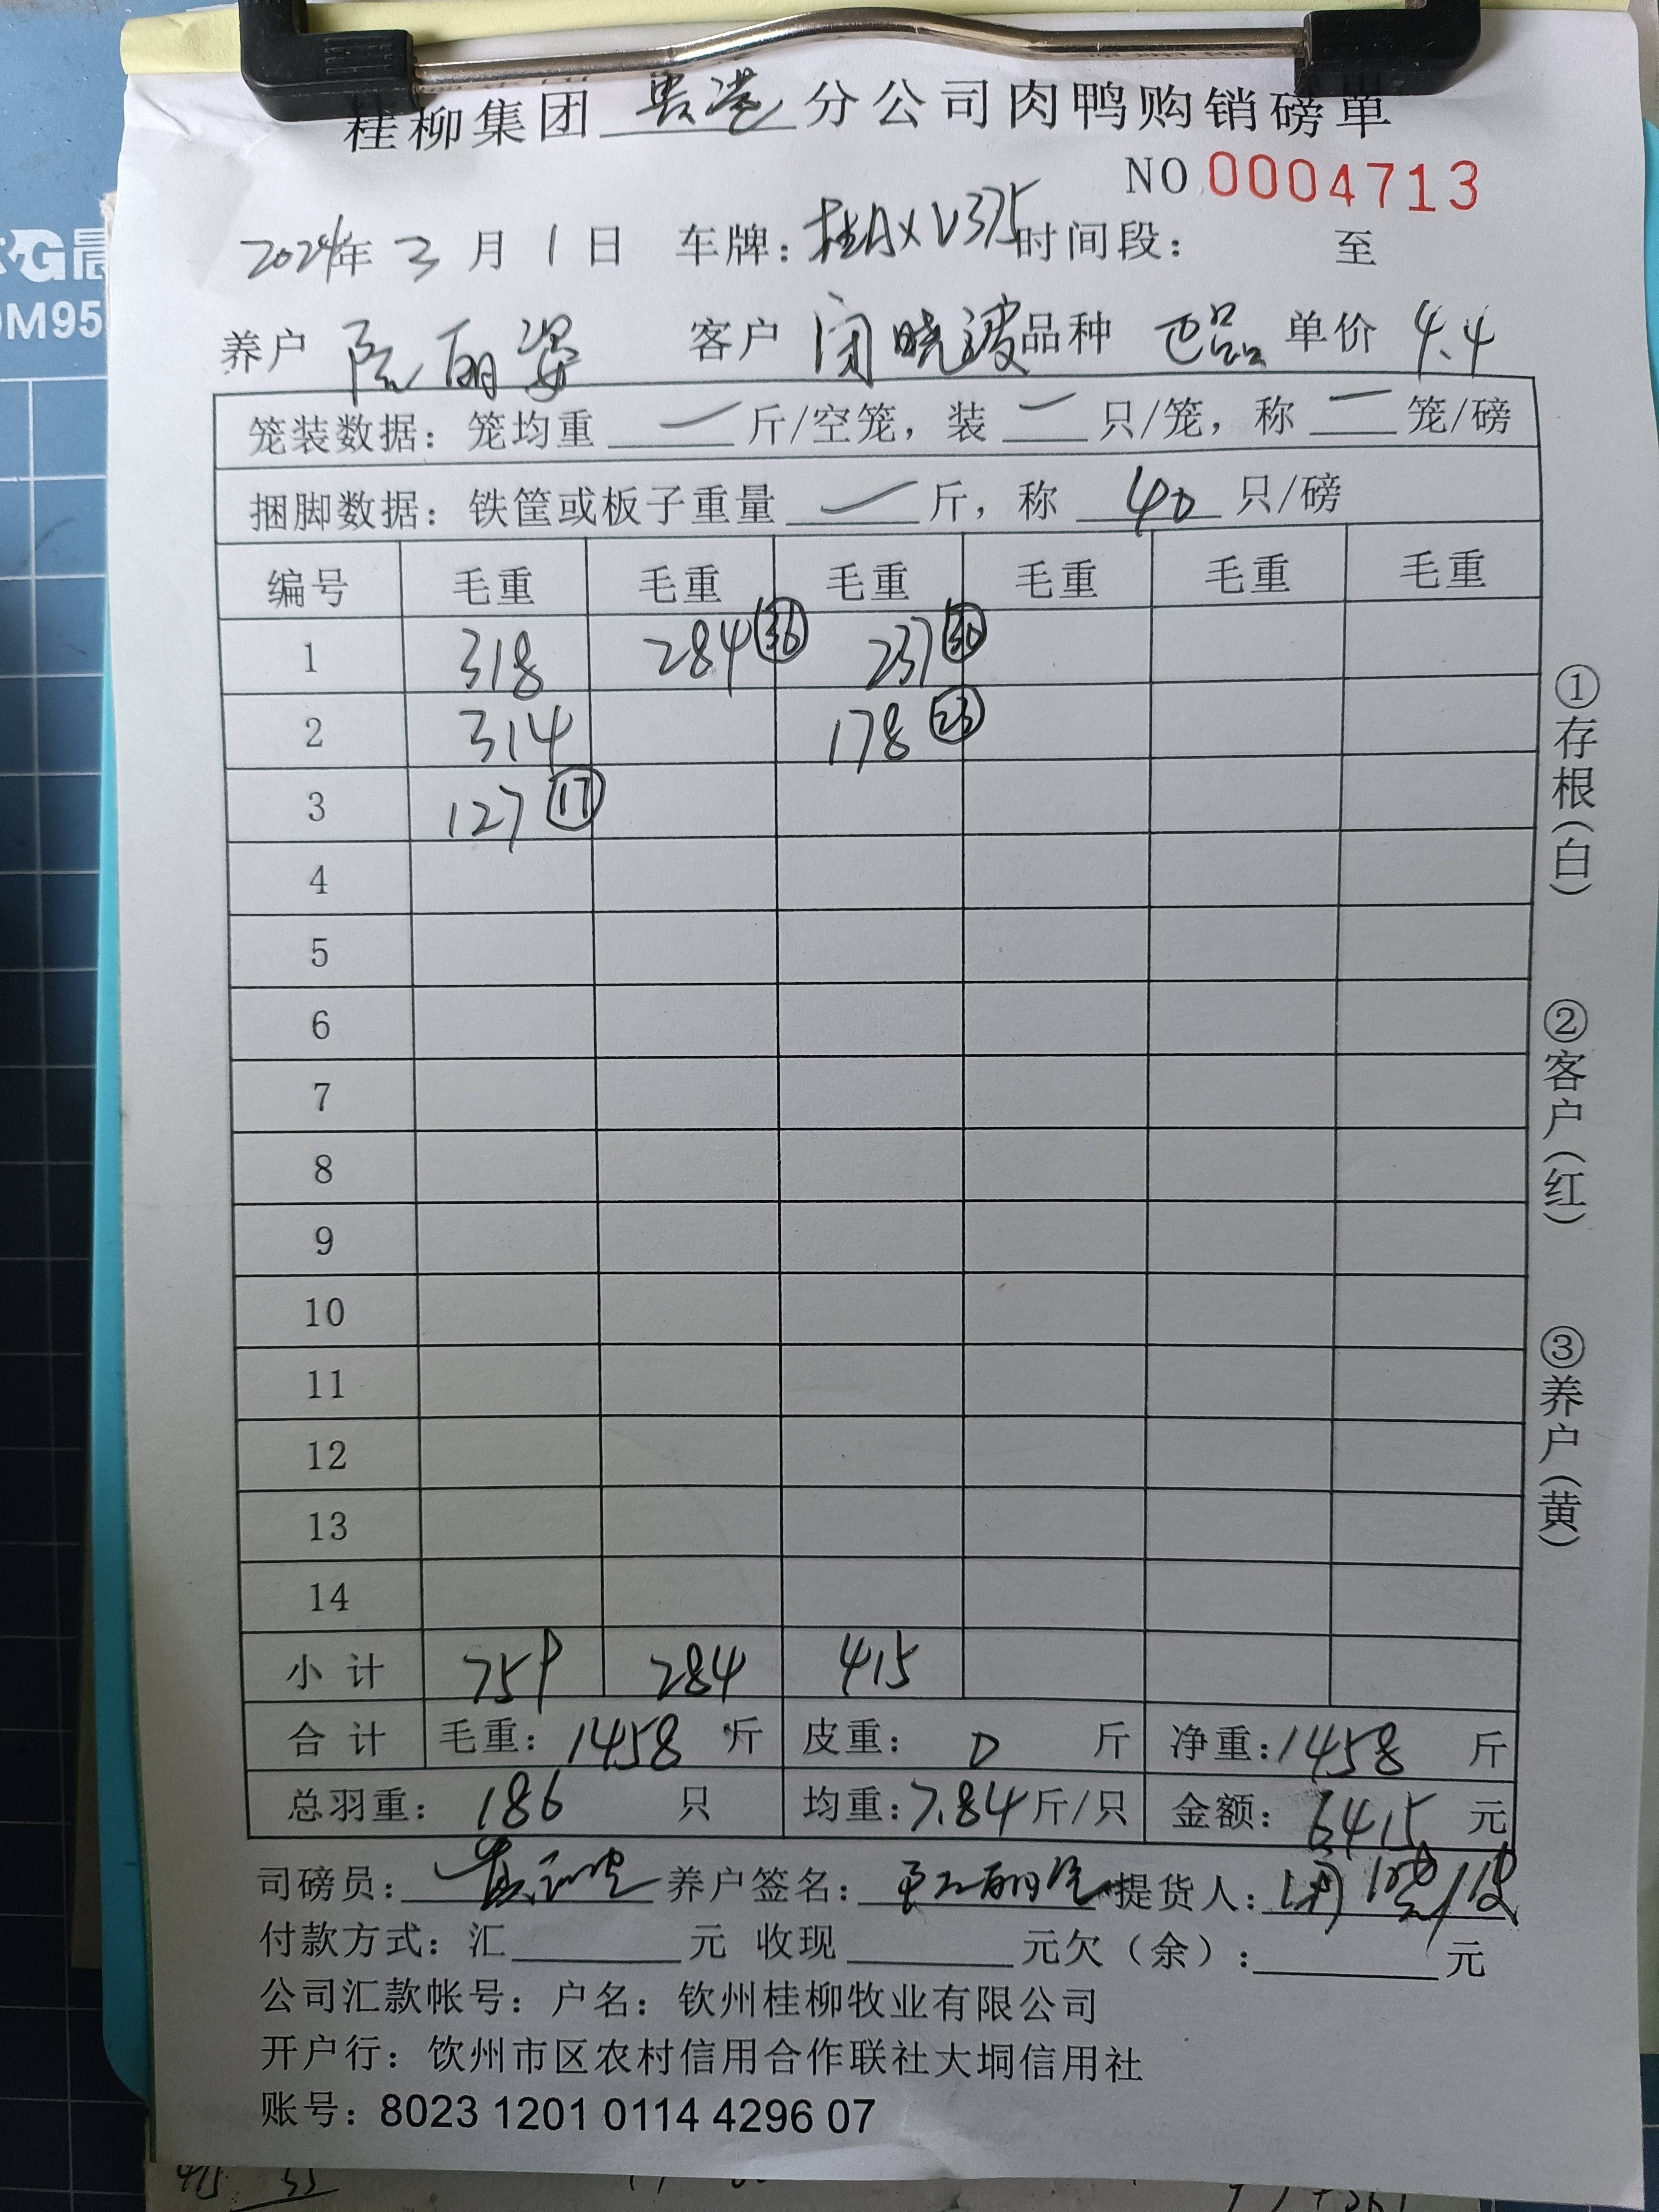 桂柳集团 贵港 分公司肉鸭购销磅单
NO.0004713
2024年 3 月 1 日 车牌:桂AXV375 时间段: 至
养户 阮丽姿 客户 闭晓波 品种 正品 单价 4.4
笼装数据: 笼均重 一 斤/空笼, 装 一 只/笼, 称 一 笼/磅
捆脚数据: 铁筐或板子重量 一 斤, 称 40 只/磅
编号 毛重 毛重 毛重 毛重 毛重 毛重
1 318 284 36 237 30
2 314 178 23
3 127 17
4
5
6
7
8
9
10
11
12
13
14
小计 759 284 415
合计 毛重: 1458 斤 皮重: 0 斤 净重: 1458 斤
总羽重: 186 只 均重: 7.84 斤/只 金额: 6415 元
司磅员: 养户签名: 提货人: 闭晓波
付款方式: 汇 元 收现 元欠(余): 元
公司汇款帐号: 户名: 钦州桂柳牧业有限公司
开户行: 饮州市区农村信用合作联社大垌信用社
账号: 8023 1201 0114 4296 07
①存根(白)
②客户(红)
③养户(黄)